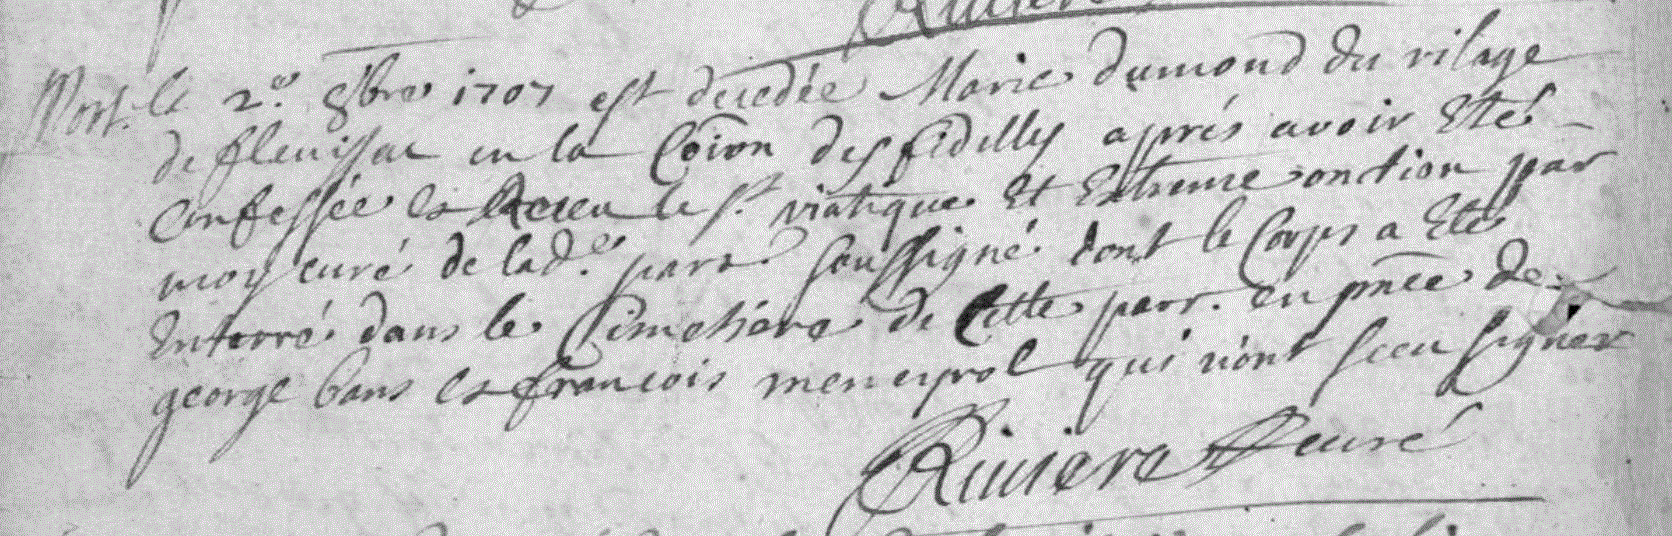 Riviere
Mort. le 2.e 8bre 1707 est decedée Marie dumond du vilage
de fleuissac en la Coion des fidelles aprés avoir Eté
Confessée et Receu le st. viatique Et Extreme onction par
moy curé de lad.e parr. soussigné dont le Corps a Eté
Enterré dans le Cimetiere de Cette parr. en pnce de
george bans et francois meneyrol qui n'ont sceu signer
Riviere curé